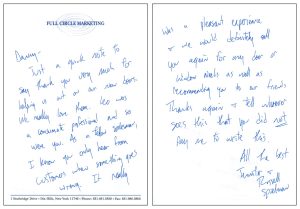 FULL CIRCLE MARKETING
Danny-
Just a quick note to
say thank you very much for
helping us out on our new doors.
We really love them. Leo was
a consummate professional and so
were you. As a fellow salesman,
I know you only hear from
customers when something goes
wrong. It really
1 Stonebridge Drive • Dix Hills, New York 11746 • Phone:
was a pleasant experience
& we would definitely call
you again for any door or
window needs as well as
recommending you to our friends
Thanks again & tell whoever
sees this that you did not
pay me to write this.
All the best
Russell